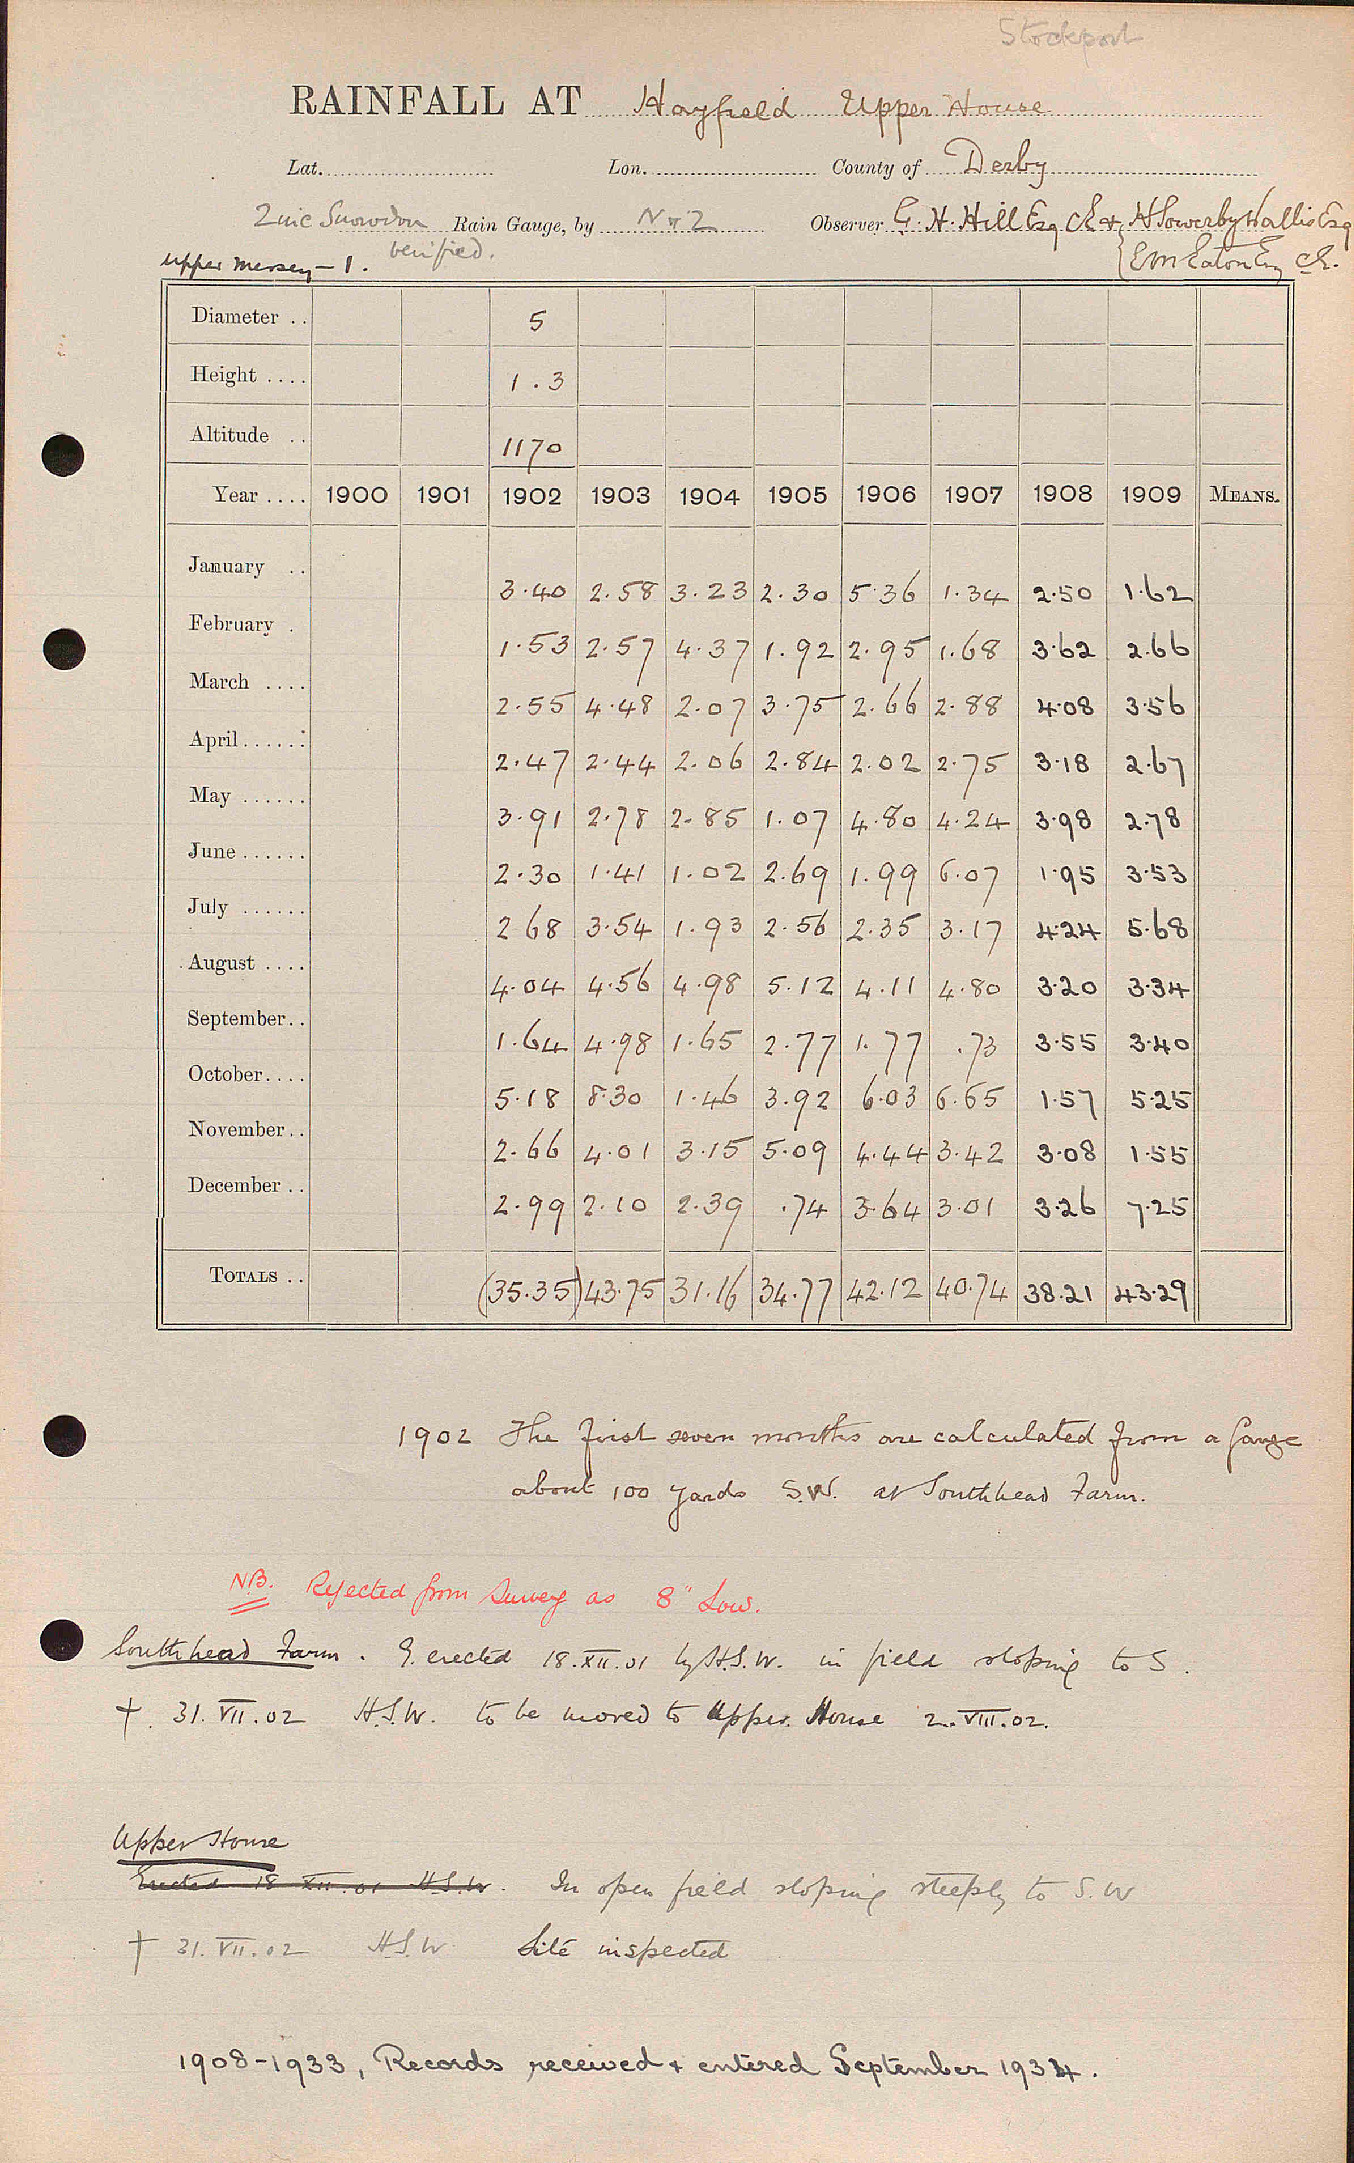 Stockport
RAINFALL AT Hayfield Upper House
Lat. Lon. County of Derby
Zinc Snowdon Rain Gauge, by N & Z Observer G. H. Hill Esq CE & H Sowerby Wallis Esq
Upper Mersey - 1. verified. { E M Eaton Esq CE.
Diameter . . 5
Height . . . . 1.3
Altitude . . 1170
Year . . . . 1900 1901 1902 1903 1904 1905 1906 1907 1908 1909 MEANS.
January . . 3.40 2.58 3.23 2.30 5.36 1.34 2.50 1.62
February . 1.53 2.57 4.37 1.92 2.95 1.68 3.62 2.66
March . . . . 2.55 4.48 2.07 3.75 2.66 2.88 4.08 3.56
April . . . . . . 2.47 2.44 2.06 2.84 2.02 2.75 3.18 2.67
May . . . . . . 3.91 2.78 2.85 1.07 4.80 4.24 3.98 2.78
June . . . . . . 2.30 1.41 1.02 2.69 1.99 6.07 1.95 3.53
July . . . . . . 2 68 3.54 1.93 2.56 2.35 3.17 4.24 5.68
August . . . . 4.04 4.56 4.98 5.12 4.11 4.80 3.20 3.34
September . . 1.64 4.98 1.65 2.77 1.77 .73 3.55 3.40
October . . . . 5.18 8.30 1.46 3.92 6.03 6.65 1.57 5.25
November . . 2.66 4.01 3.15 5.09 4.44 3.42 3.08 1.55
December . . 2.99 2.10 2.39 .74 3.64 3.01 3.26 7.25
TOTALS . . (35.35) 43.75 31.16 34.77 42.12 40.74 38.21 43.29
1902 The first seven months are calculated from a Gauge
about 100 yards S.W. at Southhead Farm.
N.B. Rejected from Survey as 8" Low.
Southhead Farm. G. erected 18.XII.01 by H.S.W. in field sloping to S.
† 31.VII.02 H.S.W. to be moved to Upper House 2.VIII.02.
Upper House
Erected 18 XII.01 H.S.W. In open field sloping steeply to S.W
† 31.VII.02 H.S.W. Site inspected
1908-1933, Records received & entered September 1934.